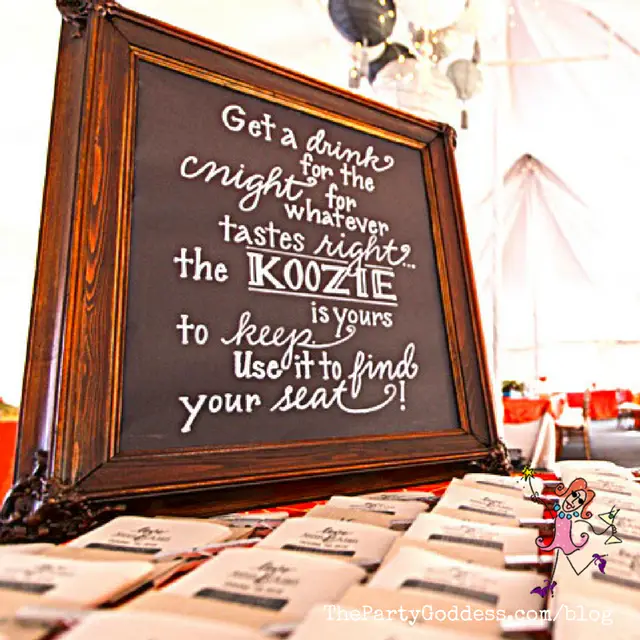 Get a drink
for the
night for
whatever
tastes right...
the KOOZIE
is yours
to keep.
Use it to find
your seat!
love
love
ThePartyGoddess.com/blog